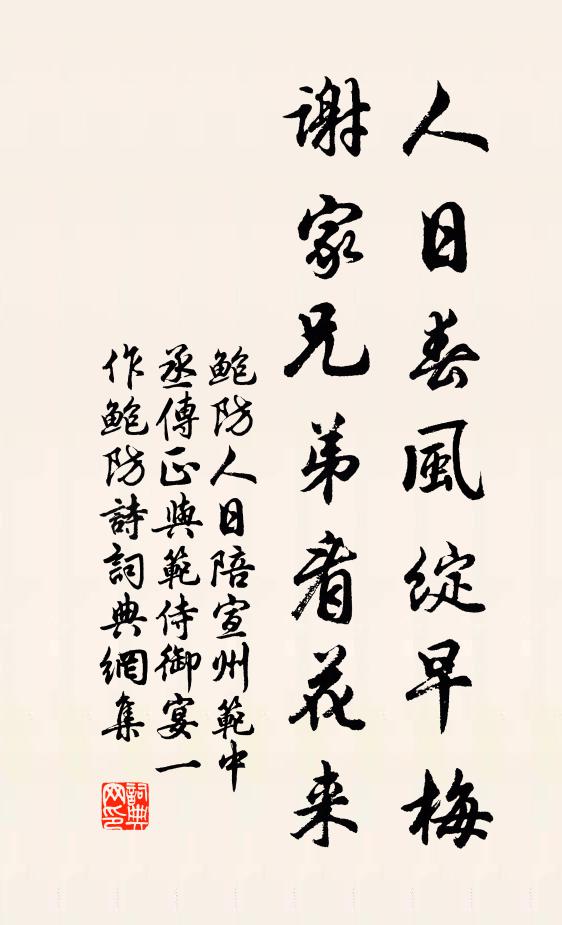 人日春風綻早梅
謝家兄弟看花来
鮑防人日陪宣州範中
丞傳正與範侍御宴一
作鮑防詩詞典網集
詞典網印